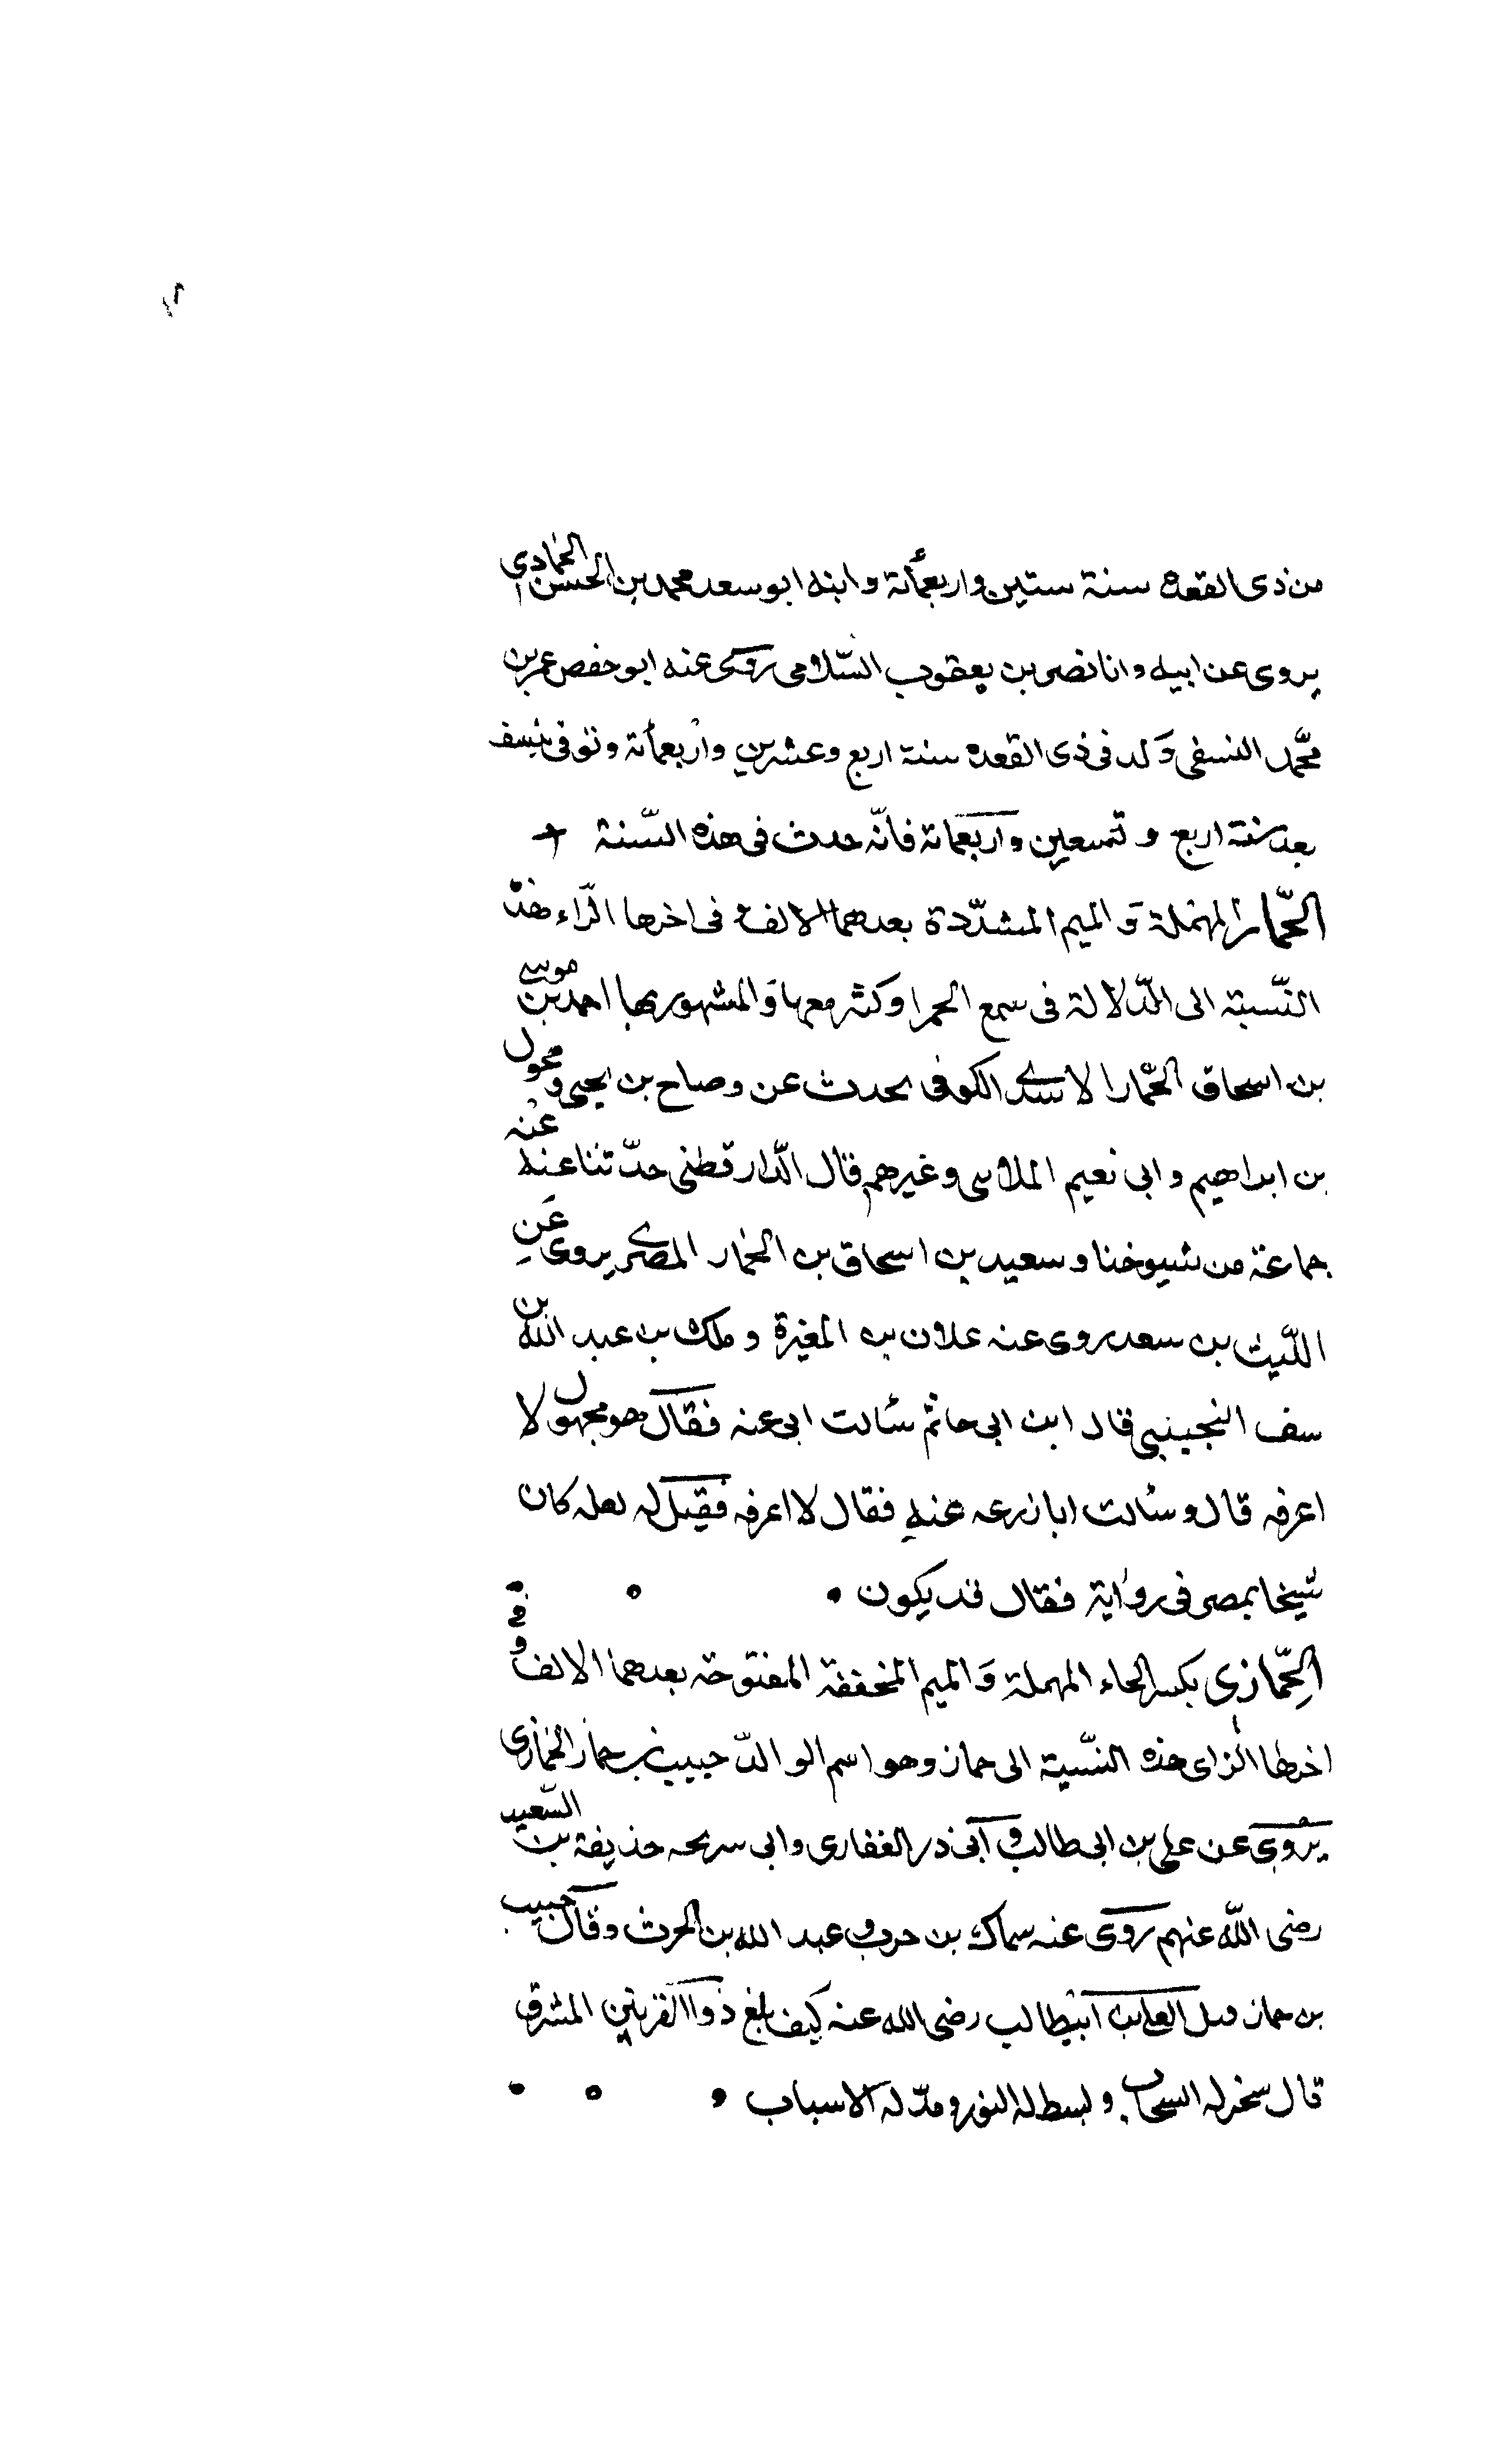 من ذى القعده سنة ستين واربعمأئة وابنه ابو سعد محمد بن الحسن الحمادى
يروى عن ابيه وانا نصر بن يعقوب السّلامى روى عنه ابو حفص عمر بن
محمّد النسفى وَلد فى ذى القعده سنة اربع وعشرين واربعمأئة وتوفى بنسف
بعد سنة اربع و تسعين واربعمائة فانّه حدث فى هذه السّنة
الحمّار المهملة وَالميم المشدّدة بعدهما الالف و فى اخرها الرّاء هذه
النّسبة الى الدّلالة فى سمع الحمرا وكثر معربا وَالمشهور بها احمد بن موسى
بن اسحاق الحمّار الاسدى الكوفى يحدث عن وضاح بن يحيى ومخول
بن ابراهيم وابى نعيم الملاسى وغيرهم قال الدّارقطنى حدّثنا عنه عنه
جماعة من شيوخنا وسعيد بن اسحاق بن الحمار المصرى يروى عَنِ
اللّيث بن سعد يروى عنه علان بن المغيرة و ملك بن عبد الله بن
سف النجيبى قال ابن ابى حاتم سئالت ابى عنه فقال هو مجهول لا
اعرفه قال وسئالت ابا زرعه عنه فقال لا اعرفه فقيل له لعله كان
شيخا بمصر فى رواية فقال قد يكون
الحِمّازى بكسر الحاء المهملة وَالميم المخففة المفتوحة بعدهما الالف و فى
اخرها الزاى هذه النّسبة الى حماز وهو اسم الوالد حبيب بن حماز الحمازى
يروى عن على بن ابى طالب و ابى ذر الغفارى وابى سريحه حذيفة بن السّعيد
رضى اللّه عنهم روى عنه سماك بن حرب و عبد الله بن الحرث وقال حبيب
بن حماز قيل لعلى بن ابيطالب رضى الله عنه كيف بلغ ذوا القرنين المشرق
قال سخر له السحاب و بسط له النور ومدّ له الاسباب